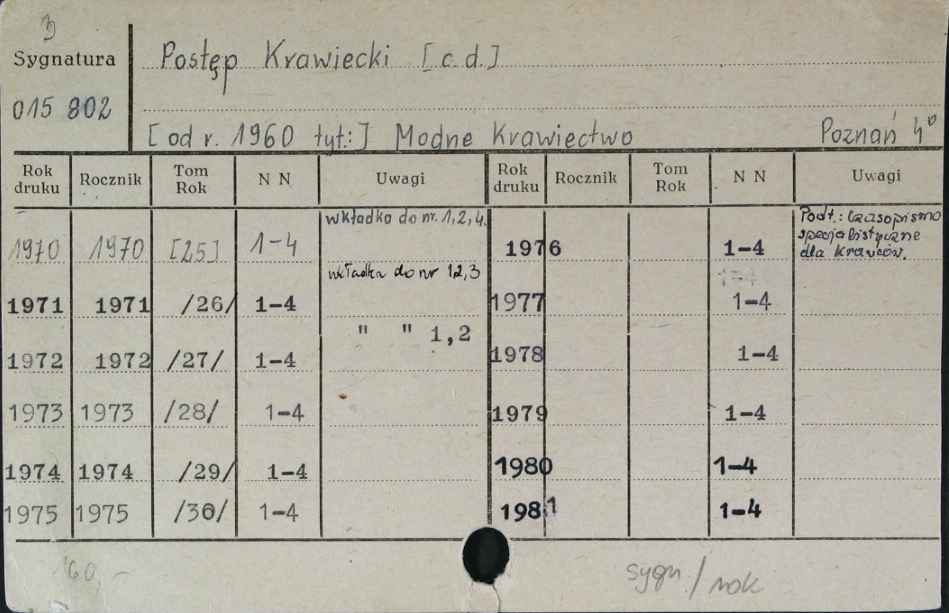 3
Sygnatura
015 802
Postęp Krawiecki [c.d.]
[od r. 1960 tyt:] Modne Krawiectwo Poznań 4°
Rok druku Rocznik Tom Rok N N Uwagi Rok druku Rocznik Tom Rok N N Uwagi
wkładka do nr. 1,2,4.
1970 1970 [25] 1-4 1976 1-4 Podt.: Czasopismo
specjalistyczne
dla krawców.
wkładka do nr 12,3
1971 1971 /26/ 1-4 1977 1-4
" " 1,2
1972 1972 /27/ 1-4 1978 1-4
1973 1973 /28/ 1-4 1979 1-4
1974 1974 /29/ 1-4 1980 1-4
1975 1975 /30/ 1-4 1981 1-4
160,-
sygn/rok